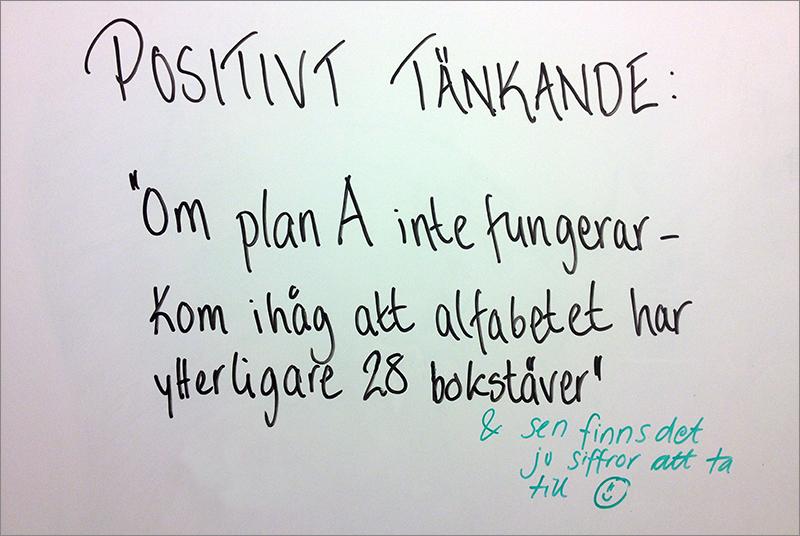 POSITIVT TÄNKANDE:
"Om plan A inte fungerar-
Kom ihåg att alfabetet har
ytterligare 28 bokstäver"
& sen finns det
ju siffror att ta
till